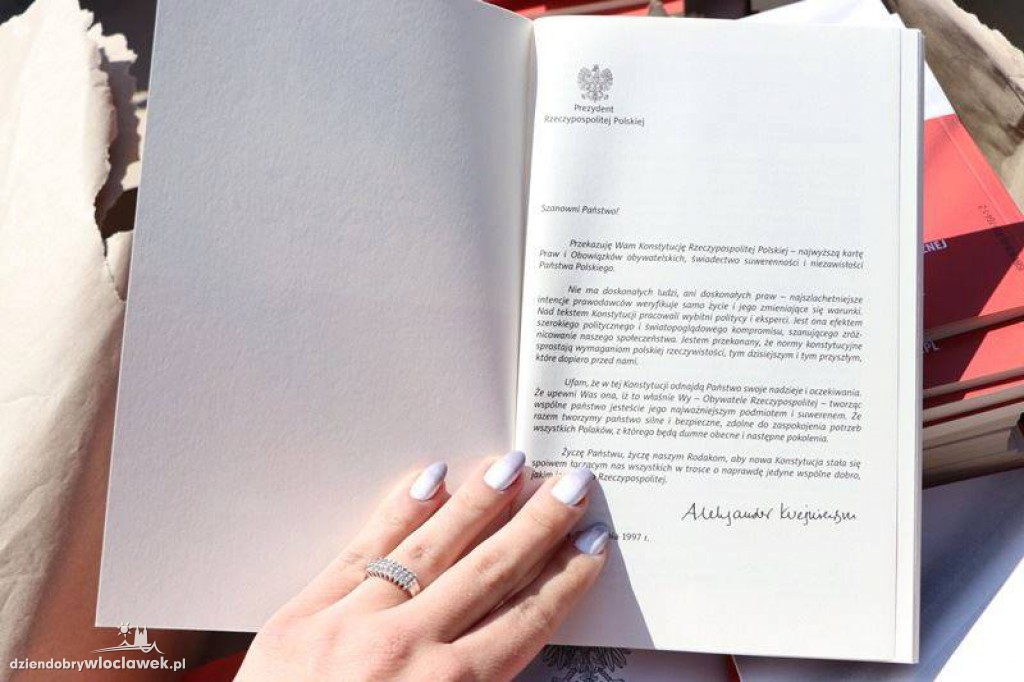 Prezydent
Rzeczypospolitej Polskiej
Szanowni Państwo!
Przekazuję Wam Konstytucję Rzeczypospolitej Polskiej – najwyższą kartę
Praw i Obowiązków obywatelskich, świadectwo suwerenności i niezawisłości
Państwa Polskiego.
Nie ma doskonałych ludzi, ani doskonałych praw – najszlachetniejsze
intencje prawodawców weryfikuje samo życie i jego zmieniające się warunki.
Nad tekstem Konstytucji pracowali wybitni politycy i eksperci. Jest ona efektem
szerokiego politycznego i światopoglądowego kompromisu, szanującego zróż-
nicowanie naszego społeczeństwa. Jestem przekonany, że normy konstytucyjne
sprostają wymaganiom polskiej rzeczywistości, tym dzisiejszym i tym przyszłym,
które dopiero przed nami.
Ufam, że w tej Konstytucji odnajdą Państwo swoje nadzieje i oczekiwania.
Że upewni Was ona, iż to właśnie Wy – Obywatele Rzeczypospolitej – tworząc
wspólne państwo jesteście jego najważniejszym podmiotem i suwerenem. Że
razem tworzymy państwo silne i bezpieczne, zdolne do zaspokojenia potrzeb
wszystkich Polaków, z którego będą dumne obecne i następne pokolenia.
Życzę Państwu, życzę naszym Rodakom, aby nowa Konstytucja stała się
spoiwem łączącym nas wszystkich w trosce o naprawdę jedyne wspólne dobro,
jakim Rzeczypospolitej.
Aleksander Kwaśniewski
1997 r.
dziendobrywloclawek.pl